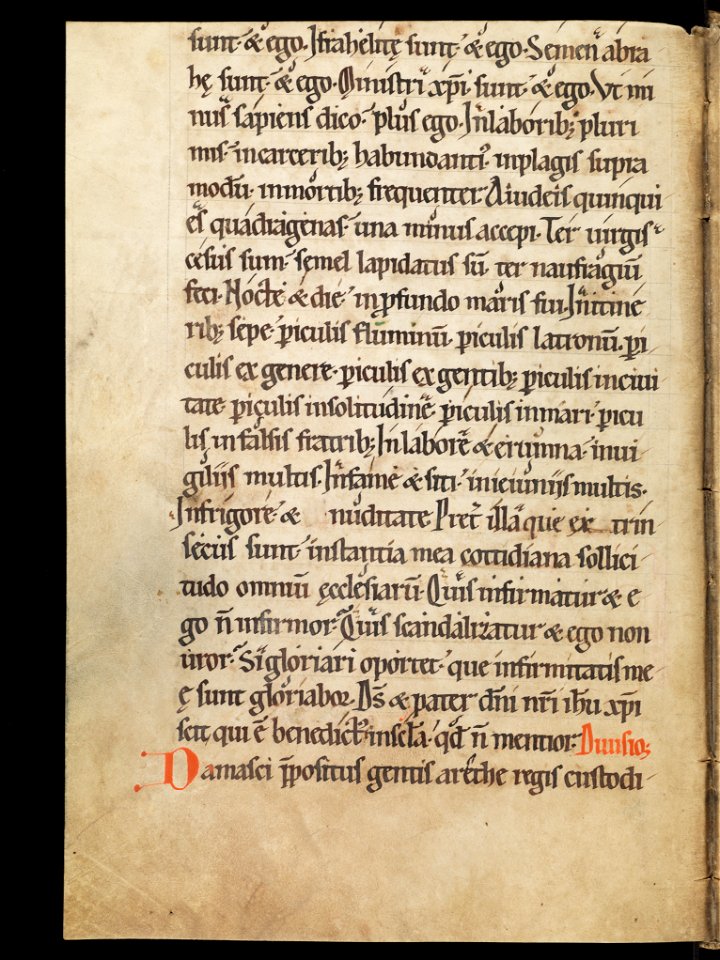 sunt· & ego· Israhelitę sunt· & ego· Semen abra
hę sunt· & ego· Ministri xp̄i sunt· & ego· Vt mi
nus sapiens dico· plus ego· In laborib; pluri
mis· in carcerib; habundanti᷒ in plagis supra
modū· in mortib; frequenter· A iudeis quinqui
es quadragenas· una minus accepi· Ter uirgis
cesus sum· semel lapidatus sū· ter naufragiū
feci· Nocte & die· in ꝓfundo maris fui· In itine
rib; sepe· ꝑiculis fluminū· ꝑiculis latronū· ꝑi
culis ex genere· ꝑiculis ex gentib; ꝑiculis in ciui
tate· ꝑiculis in solitudine· ꝑiculis in mari· ꝑicu
lis in falsis fratrib; In labore & erumna· in ui
giliis multis· In fame & siti· in ieiuniis multis·
In frigore & nuditate Pret̄ illa que ex trin
secus sunt· instantia mea cottidiana sollici
tudo omniū ęcclesiarū· Quis infirmatur & e
go n̄ infirmor· Quis scandalizatur & ego non
uror· Si gloriari oportet· que infirmitatis me
ę sunt gloriabor· Ds̄ & pater dn̄i nr̄i ihu xp̄i
scit qui ē benedict᷒ in scła· qđ n̄ mentior· Diuisio;
Damasci p̄positus gentis arethe regis custodi